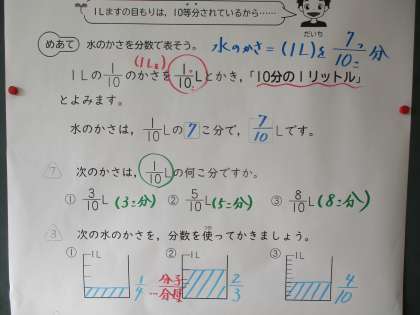 1Lますの目もりは、10等分されているから……
だいち
めあて 水のかさを分数で表そう。 水のかさ=(1L)を 7/10こ分
(1Lを)
1Lの1/10のかさを1/10Lとかき、「10分の1リットル」
とよみます。
水のかさは、1/10Lの7こ分で、7/10Lです。
7 次のかさは、1/10Lの何こ分ですか。
① 3/10L (3こ分) ② 5/10L (5こ分) ③ 8/10L (8こ分)
3 次の水のかさを、分数を使ってかきましょう。
① 1L 1/4 分子 …分母 ② 1L 2/3 ③ 1L 4/10